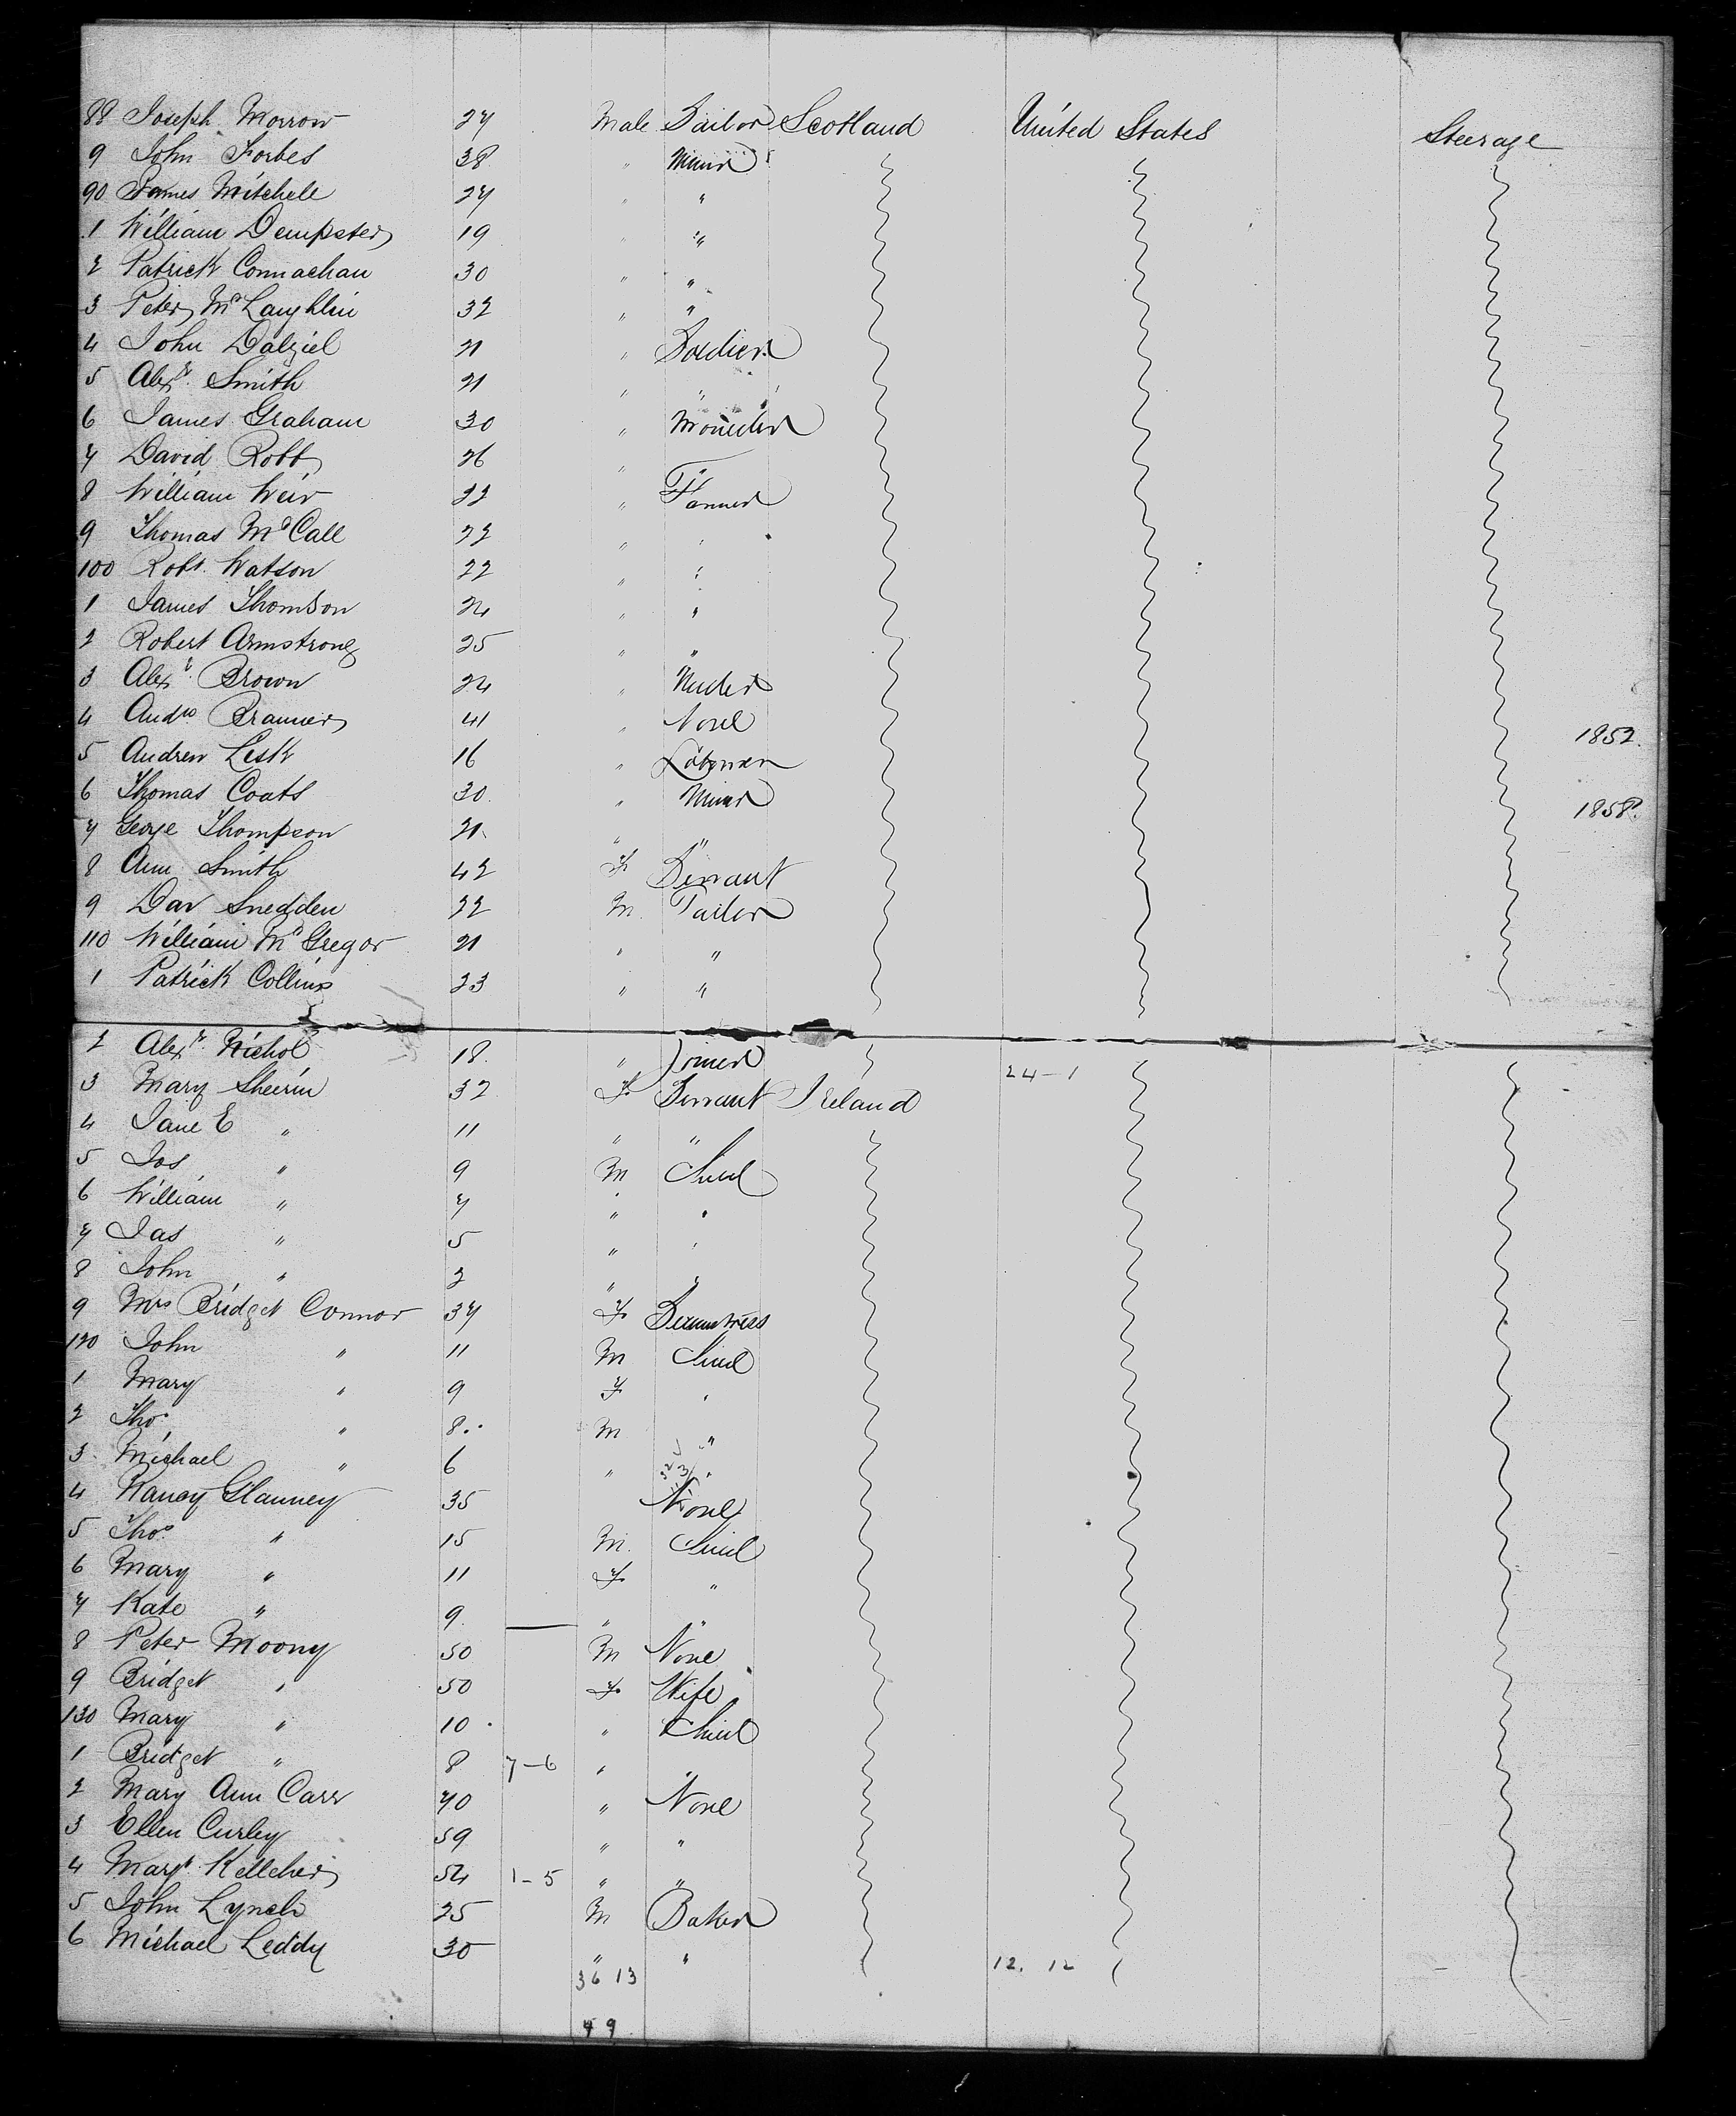 88 Joseph Morrow 27 Male Sailor Scotland United States Steerage
9 John Forbes 38 " Miner
90 James Mitchell 27 " "
1 William Dempster 19 " "
2 Patrick Connachan 30 " "
3 Peter McLaughlin 32 " "
4 John Dalziel 21 " Soldier
5 Alexr Smith 21 " "
6 James Graham 30 " Moulder
7 David Robb 26 " "
8 William Weir 22 " Farmer
9 Thomas McCall 22 " "
100 Robt Watson 22 " "
1 James Thomson 24 " "
2 Robert Armstrong 25 " "
3 Alexr Brown 24 "
4 Andw 41 " None 1852.
5 Andrew Lesk 16 "
6 Thomas Coats 30 " Miner 1858.
7 George Thompson 21 " "
8 Ann Smith 42 F Servant
9 Dav Snedden 22 M Tailor
110 William McGregor 21 " "
1 Patrick Collins 23 " "
2 Alexr Nichol 18 " Joiner
24-1
3 Mary Sheerin 32 F Servant Ireland
4 Jane E " 11 " "
5 Jos " 9 M Child
6 William " 7 " "
7 Jas " 5 " "
8 John " 2 " "
9 Mrs Bridget Connor 37 F Seamstress
120 John " 11 M Child
1 Mary " 9 F "
2 Tho " 8 M "
3 Michael " 6 " "
4 Nancy Glanney 35 None
5 Thos " 15 M Child
6 Mary " 11 F "
7 Kate " 9 " "
8 Peter Moony 50 M None
9 Bridget " 50 F Wife
130 Mary " 10 " Child
1 Bridget " 8 7-6 " "
2 Mary Ann Carr 70 " None
3 Ellen Curley 59 " "
4 Margt Kelleher 54 1-5 " "
5 John Lynch 25 M Baker
6 Michael Leddy 30 " "
36 13 12. 12
49